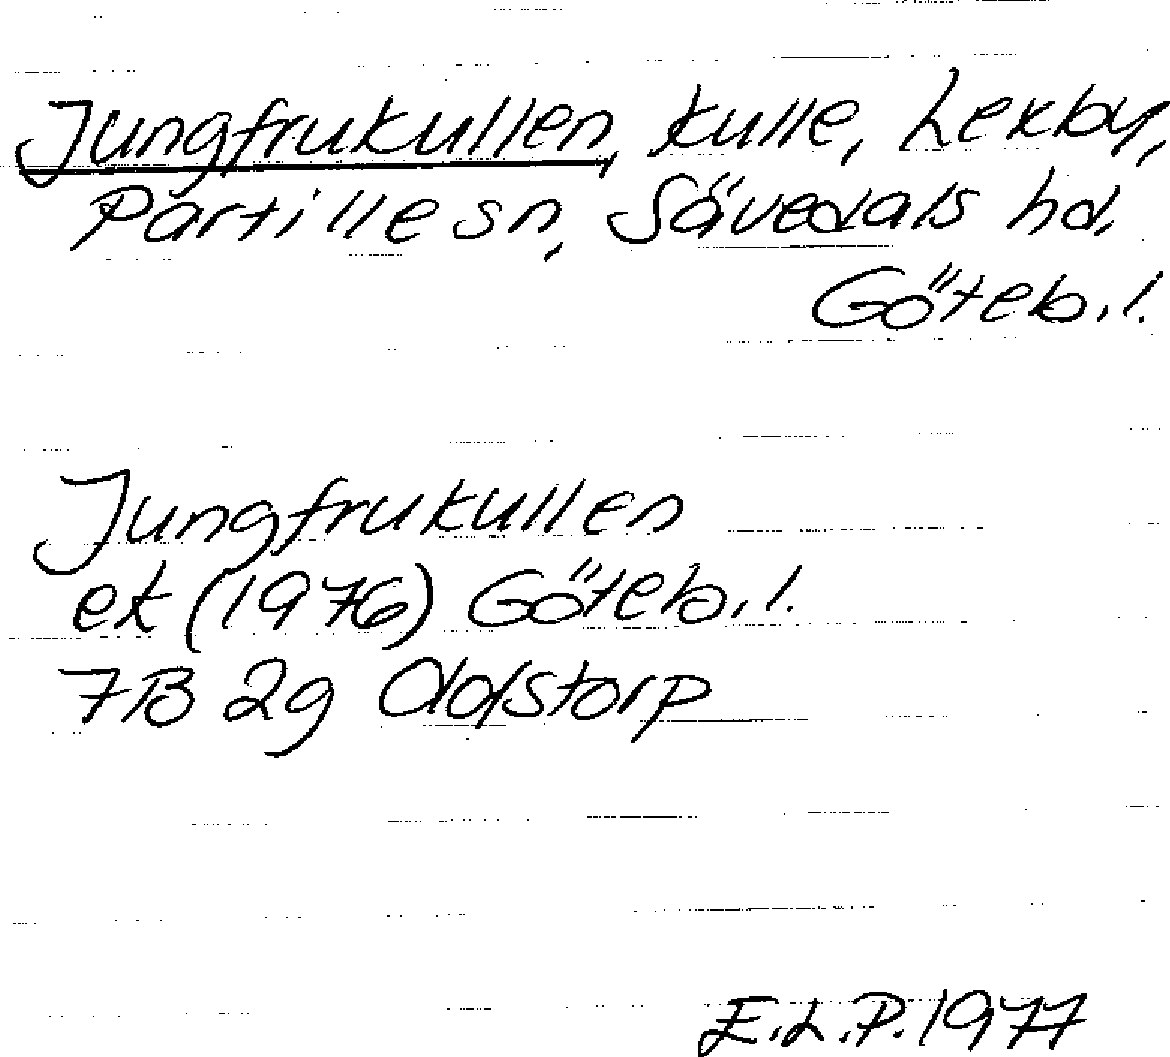 Jungfrukullen, kulle, Lexby,
Partille sn, Sävedals hd.
Göteb. l.
Jungfrukullen
ek (1976) Göteb. l.
7B 2g Oddstorp
E.L.P. 1977